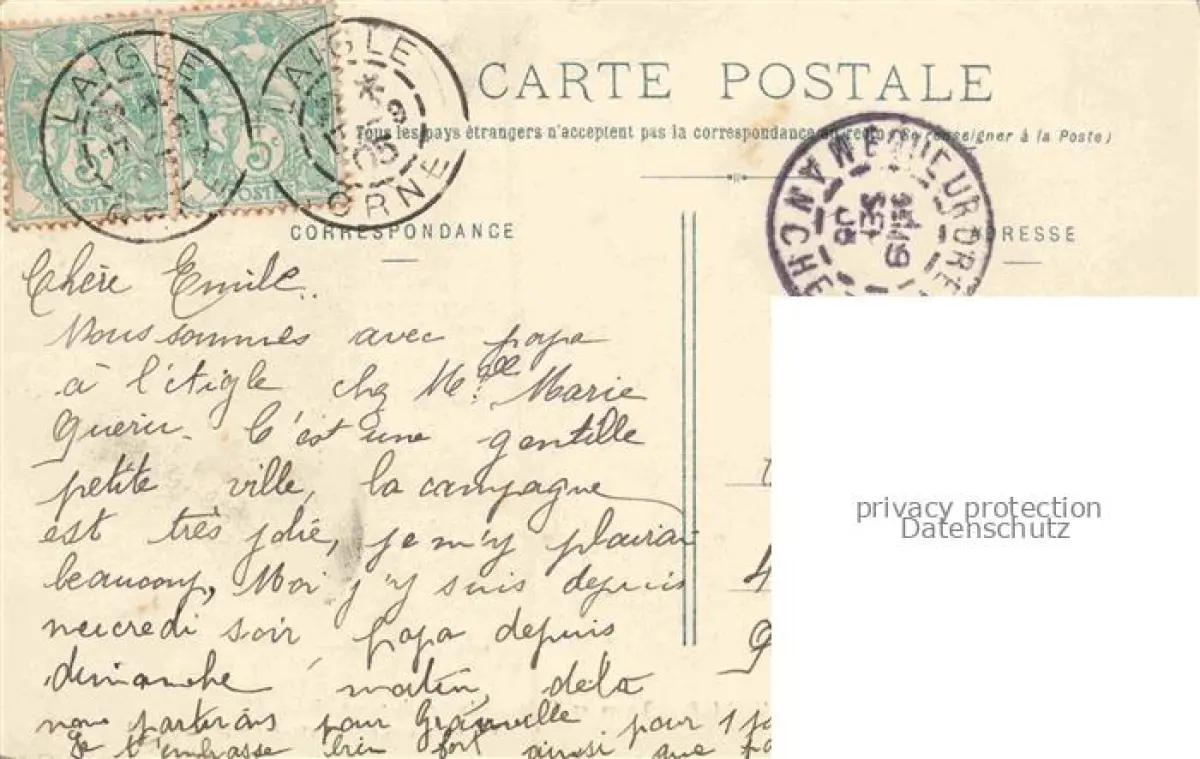 LAIGLE
ORNE
LAIGLE
ORNE
5c
POSTE
5c
POSTE
CARTE POSTALE
Tous les pays étrangers n'acceptent pas la correspondance au recto (Se renseigner à la Poste)
QUEURDRE
MANCHE
19
SEPT
05
CORRESPONDANCE
ADRESSE
Chère Emile.
Nous sommes avec papa
à l'Aigle chez Melle Marie
Guérin. C'est une gentille
petite ville, la campagne
est très jolie, je m'y plairai
beaucoup, Moi j'y suis depuis
mercredi soir, papa depuis
dimanche matin, de là
nous partirons pour Grainville pour 1
Je t'embrasse bien fort ainsi que
privacy protection
Datenschutz